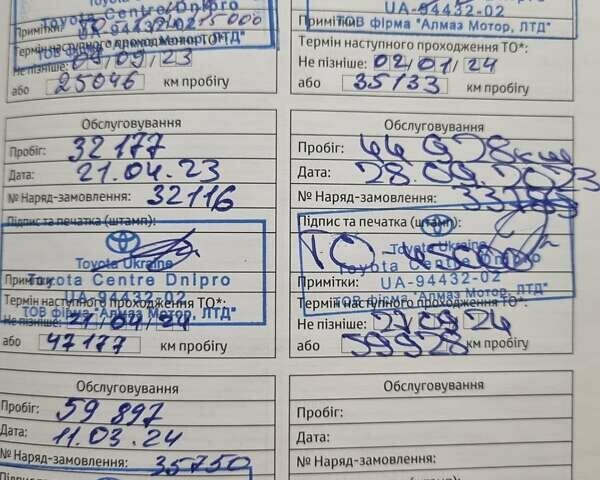 Toyota Centre Dnipro
Примітки: 15000
UA-94432-02
Термін наступного проходження ТО*:
ТОВ фірма "Алмаз Мотор, ЛТД"
Не пізніше: 09/23
або 25046 км пробігу
UA-94432-02
Примітки:
ТОВ фірма "Алмаз Мотор, ЛТД"
Термін наступного проходження ТО*:
Не пізніше: 02/01/24
або 35133 км пробігу
Обслуговування
Пробіг: 32177
Дата: 21.04.23
№ Наряд-замовлення: 32116
Підпис та печатка (штамп):
Toyota Ukraine
Toyota Centre Dnipro
Примітки:
UA-94432-02
Термін наступного проходження ТО*:
ТОВ фірма "Алмаз Мотор, ЛТД"
Не пізніше: 21/04/24
або 47177 км пробігу
Обслуговування
Пробіг: 44928км
Дата: 28.09.2023
№ Наряд-замовлення:
Підпис та печатка (штамп):
ТО
Toyota Ukraine
Toyota Centre Dnipro
Примітки: UA-94432-02
ТОВ фірма "Алмаз Мотор, ЛТД"
Термін наступного проходження ТО*:
Не пізніше: 27/09/24
або 59928 км пробігу
Обслуговування
Пробіг: 59897
Дата: 11.03.24
№ Наряд-замовлення: 35750
Обслуговування
Пробіг:
Дата:
№ Наряд-замовлення: